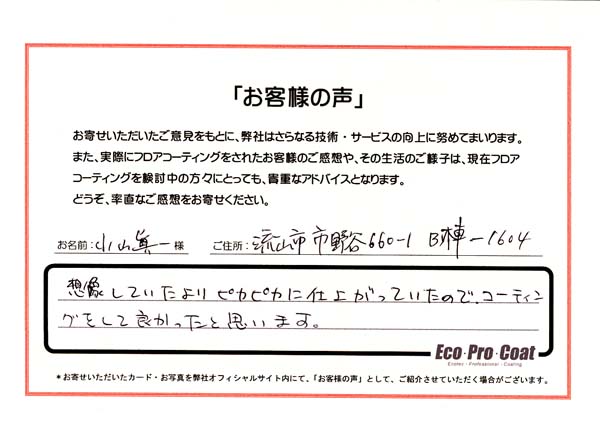 「お客様の声」
お寄せいただいたご意見をもとに、弊社はさらなる技術・サービスの向上に努めてまいります。
また、実際にフロアコーティングをされたお客様のご感想や、その生活のご様子は、現在フロア
コーティングを検討中の方々にとっても、貴重なアドバイスとなります。
どうぞ、率直なご感想をお寄せください。
お名前:小山眞一様 ご住所:流山市市野谷660-1 B棟-1604
想像していたよりピカピカに仕上がっていたので、コーティン
グをして良かったと思います。
Eco・Pro・Coat
Exotec・Professional・Coating
*お寄せいただいたカード・お写真を弊社オフィシャルサイト内にて、「お客様の声」として、ご紹介させていただく場合がございます。